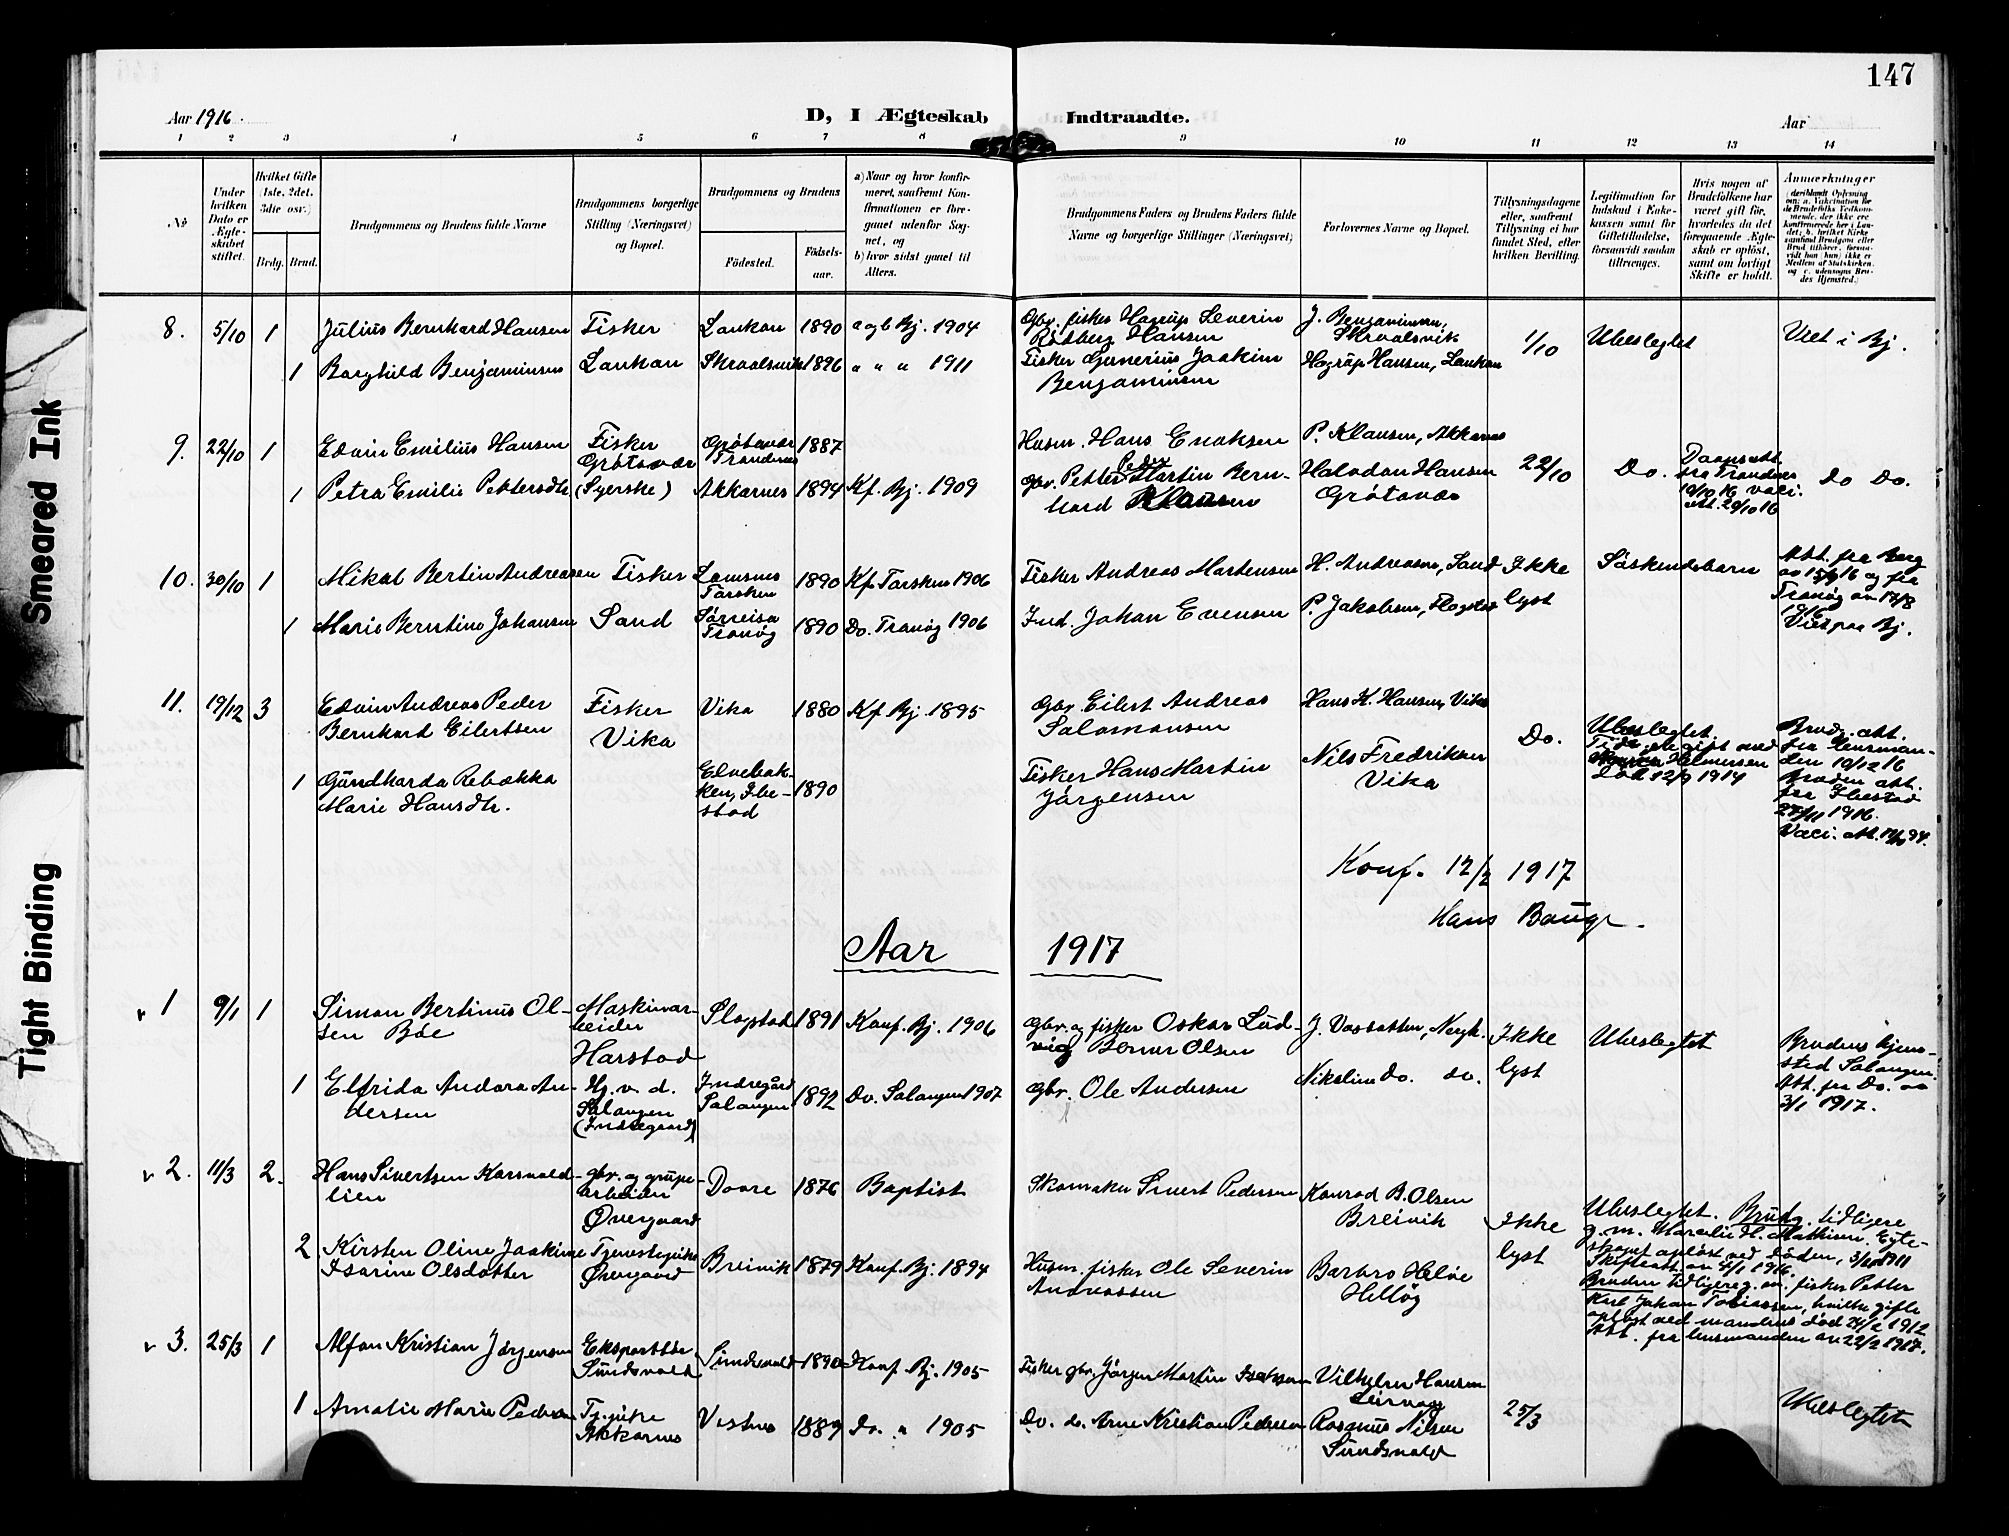 147
Aar 1916
D, I Ægteskab Indtraadte.
Aar
1 2 3 4 5 6 7 8 9 10 11 12 13 14
No
Under hvilken Dato er Ægteskabet stiftet.
Hvilket Gifte (1ste, 2det, 3die osv.)
Brdg. Brud.
Brudgommens og Brudens fulde Navne
Brudgommens borgerlige Stilling (Næringsvei) og Bopæl.
Brudgommens og Brudens
Fødested.
Fødselsaar.
a) Naar og hvor konfirmeret, saafremt Konfirmationen er foregaaet udenfor Sognet, og
b) hvor sidst gaaet til Alters.
Brudgommens Faders og Brudens Faders fulde Navne og borgerlige Stillinger (Næringsvei)
Forlovernes Navne og Bopæl.
Tillysningsdagene eller, saafremt Tillysning ei har fundet Sted, efter hvilken Bevilling.
Legitimation for Indskud i Enkekassen samt for Giftetilladelse, forsaavidt saadan tiltrænges.
Hvis nogen af Brudefolkene har været gift før, hvorledes da det foregaaende Ægteskab er opløst, samt om lovligt Skifte er holdt.
Anmærkninger
8. 5/10 1 Julius Bernhard Hansen Fisker Laukan 1890 a og b Bj. 1904 Gbr. fisker Hagrup Severin Rødberg Hansen J. Benjaminsen, Skroalsvik 1/10 Ubeslegtet Viet i Bj.
1 Borghild Benjaminsen Laukan Skroalsvik 1896 " " " 1911 Fisker Gunerius Joakim Benjaminsen Hagrup Hansen, Laukan
9. 22/10 1 Edvin Emilius Hansen Fisker Grötavær Grötavær Trondenes 1887 Husm. Hans Enoksen P. Klausen, Akkarnes 22/10 Do. Daapsatt. fra Trondenes 10/10 16 vacc. att. 20/10 16 Do Do.
1 Petra Emilie Pettersdtr. (Syerske) Akkarnes 1894 Kf. Bj. 1909 Gbr. Petter Peder Martin Bernhard Klausen Halvdan Hansen Grötavær
10. 30/10 1 Mikal Bertin Andreasen Fisker Lomsnes Torsken 1890 Kf. Torsken 1906 Fisker Andreas Mortensen H. Andreasen, Sand Ikke lyst Søskendebarn Att. fra Berg av 15/9 16 og fra Tranøy av 17/8 1916 Viet paa Bj.
1 Marie Berntine Johansen Sand Sørreisa Tranøy 1890 Do. Tranøy 1906 Ind. Johan Evensen P. Jakobsen, Flagstad
11. 19/12 3 Edvin Andreas Peder Bernhard Eilertsen Fisker Vika Vika 1880 Kf Bj. 1895 Gbr. Eilert Andreas Salomonsen Hans K. Hansen, Vika Do. Ubeslegtet. Tidr. gift med Helmersen död 12/9 1914 Brudg. att. fra lensmanden 10/12 16 Bruden att. fra Ibestad 27/11 1916. Vacc. att.
1 Gundharda Rebækka Marie Hansdtr. Elvebakken, Ibestad 1890 Fisker Hans Martin Jörgensen Nils Fredriksen Vika
Konf. 12/2 1917
Hans Bauge.
Aar 1917
v 1 9/1 1 Simon Bertinus Olsen Böe Maskinarbeider Harstad Flagstad 1891 Konf. Bj. 1906 Gbr. og fisker Oskar Ludvig Berner Olsen J. Vasbotten, Nergk. Ikke lyst Ubeslegtet Brudens hjemsted Salangen. Att. fra Do. av 3/1 1917.
1 Elfrida Andora Andersen Hj. v. d. Salangen (Indregaard) Indregård Salangen 1892 Do. Salangen 1907 Gbr. Ole Andersen Nikoline do. do.
v 2. 11/3 2. Hans Sivertsen Karsvoldlien gbr. og grubearbeider Øvergaard Dovre 1876 Baptist Skomaker Sivert Pedersen Konrad B. Olsen Breivik Ikke lyst Ubeslegtet. Brudg. tidligere g. m. Marcelie H. Mathisen. Egteskapet opløst ved døden, 3/10 1911 Skifteatt. av 4/1 1916. Bruden tidligere g. m. fisker Petter Karl Johan Tobiassen, hvilke gifte opløst ved mandens död 24/2 1912 Att. fra lensmanden av 22/2 1917.
2 Kirsten Oline Joakime Isarine Olsdotter Tjenestepike Øvergaard Breivik 1879 Konf. Bj. 1894 Husm. fisker Ole Severin Andreassen Barbro Helve Helløy
v 3. 25/3 1 Alfon Kristian Jörgensen Sundsvold Sundsvold 1890 Konf. Bj. 1905 Fisker gbr. Jörgen Martin Isaksen Vilhelm Hansen Leirvåg 25/3 Ubeslegtet
1 Amalie Marie Pedersen Tj. pike Akkarnes Vestnes 1889 Do. " 1905 Do. do. Arne Kristian Pedersen Rasmus Nilsen Sundsvold
Smeared Ink
Tight Binding